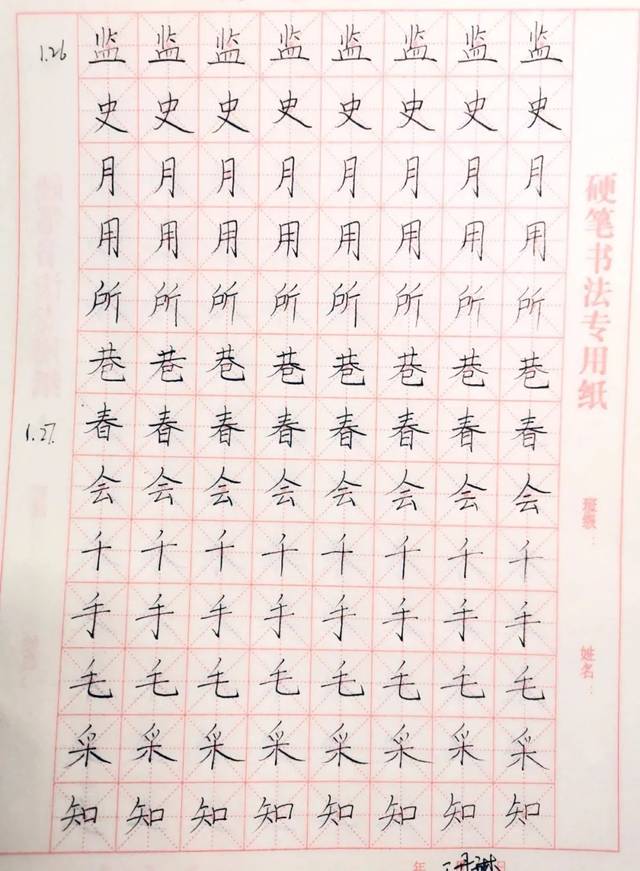 1.26 监监监监监监监监
史史史史史史史史
月月月月月月月月
用用用用用用用用
所所所所所所所所
巷巷巷巷巷巷巷巷
1.27. 春春春春春春春春
会会会会会会会会
千千千千千千千千
手手手手手手手手
毛毛毛毛毛毛毛毛
采采采采采采采采
知知知知知知知知
硬笔书法专用纸
班级：
姓名：
年